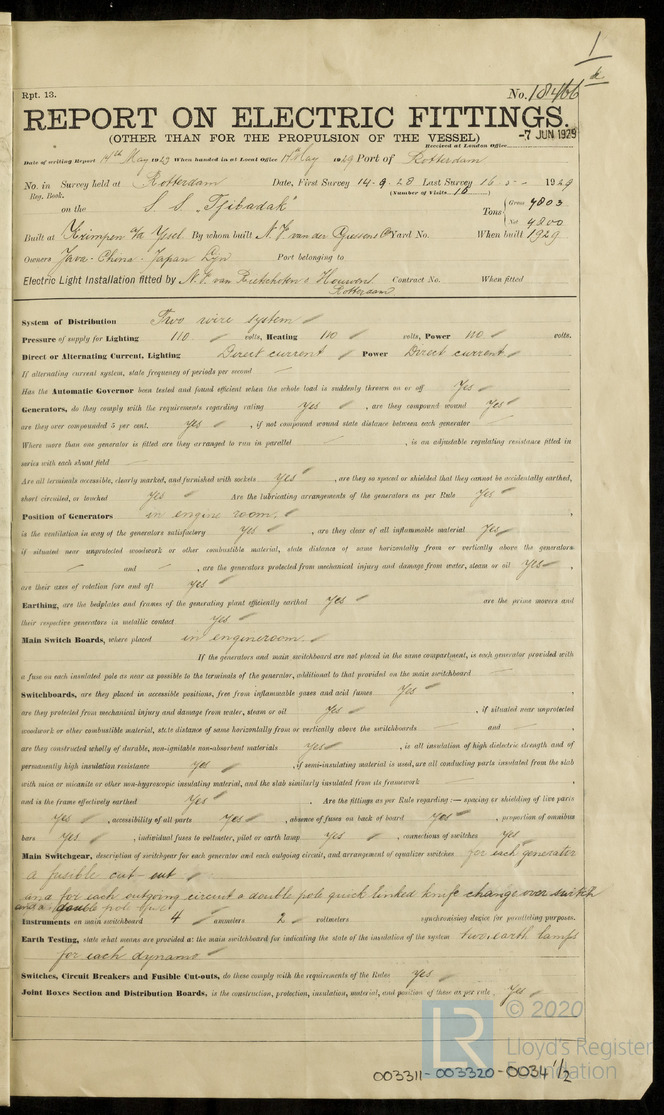 1
Rpt. 13.
No. 18466
REPORT ON ELECTRIC FITTINGS.
(OTHER THAN FOR THE PROPULSION OF THE VESSEL)
-7 JUN 1929
Received at London Office
Date of writing Report 17th May 1929 When handed in at Local Office 17th May 1929 Port of Rotterdam
No. in Survey held at Rotterdam Date, First Survey 14-9-28 Last Survey 16-5- 1929
Reg. Book. (Number of Visits 16
on the S.S. "Tjibadak" Tons { Gross 7803
Net 4800
Built at Krimpen a/d Yssel By whom built N.V. van der Giessens Yard No. When built 1929
Owners Java-China-Japan Lijn Port belonging to
Electric Light Installation fitted by N.V. van Rietschoten & Houwens Contract No. When fitted
Rotterdam
System of Distribution Two wire system
Pressure of supply for Lighting 110 volts, Heating 110 volts, Power 110 volts.
Direct or Alternating Current, Lighting Direct current Power Direct current
If alternating current system, state frequency of periods per second
Has the Automatic Governor been tested and found efficient when the whole load is suddenly thrown on or off Yes
Generators, do they comply with the requirements regarding rating Yes , are they compound wound Yes
are they over compounded 5 per cent. Yes , if not compound wound state distance between each generator
Where more than one generator is fitted are they arranged to run in parallel , is an adjustable regulating resistance fitted in
series with each shunt field
Are all terminals accessible, clearly marked, and furnished with sockets Yes , are they so spaced or shielded that they cannot be accidentally earthed,
short circuited, or touched Yes Are the lubricating arrangements of the generators as per Rule Yes
Position of Generators in engine room.
is the ventilation in way of the generators satisfactory Yes , are they clear of all inflammable material Yes
if situated near unprotected woodwork or other combustible material, state distance of same horizontally from or vertically above the generators
and , are the generators protected from mechanical injury and damage from water, steam or oil Yes ,
are their axes of rotation fore and aft Yes
Earthing, are the bedplates and frames of the generating plant efficiently earthed Yes are the prime movers and
their respective generators in metallic contact Yes
Main Switch Boards, where placed in engineroom.
If the generators and main switchboard are not placed in the same compartment, is each generator provided with
a fuse on each insulated pole as near as possible to the terminals of the generator, additional to that provided on the main switchboard
Switchboards, are they placed in accessible positions, free from inflammable gases and acid fumes Yes ,
are they protected from mechanical injury and damage from water, steam or oil Yes , if situated near unprotected
woodwork or other combustible material, state distance of same horizontally from or vertically above the switchboards and ,
are they constructed wholly of durable, non-ignitable non-absorbent materials Yes , is all insulation of high dielectric strength and of
permanently high insulation resistance Yes , if semi-insulating material is used, are all conducting parts insulated from the slab
with mica or micanite or other non-hygroscopic insulating material, and the slab similarly insulated from its framework ,
and is the frame effectively earthed Yes . Are the fittings as per Rule regarding:— spacing or shielding of live parts
Yes , accessibility of all parts Yes , absence of fuses on back of board Yes , proportion of omnibus
bars Yes , individual fuses to voltmeter, pilot or earth lamp Yes , connections of switches Yes
Main Switchgear, description of switchgear for each generator and each outgoing circuit, and arrangement of equalizer switches for each generator
a fusible cut out
and for each outgoing circuit a double pole quick linked knife change over switch
and a double pole fuse
Instruments on main switchboard 4 ammeters 2 voltmeters synchronising device for paralleling purposes.
Earth Testing, state what means are provided at the main switchboard for indicating the state of the insulation of the system two earth lamps
for each dynamo.
Switches, Circuit Breakers and Fusible Cut-outs, do these comply with the requirements of the Rules Yes
Joint Boxes Section and Distribution Boards, is the construction, protection, insulation, material, and position of these as per rule Yes
© 2020
LR
Lloyd's Register
Foundation
003311-003320-0034 1/2